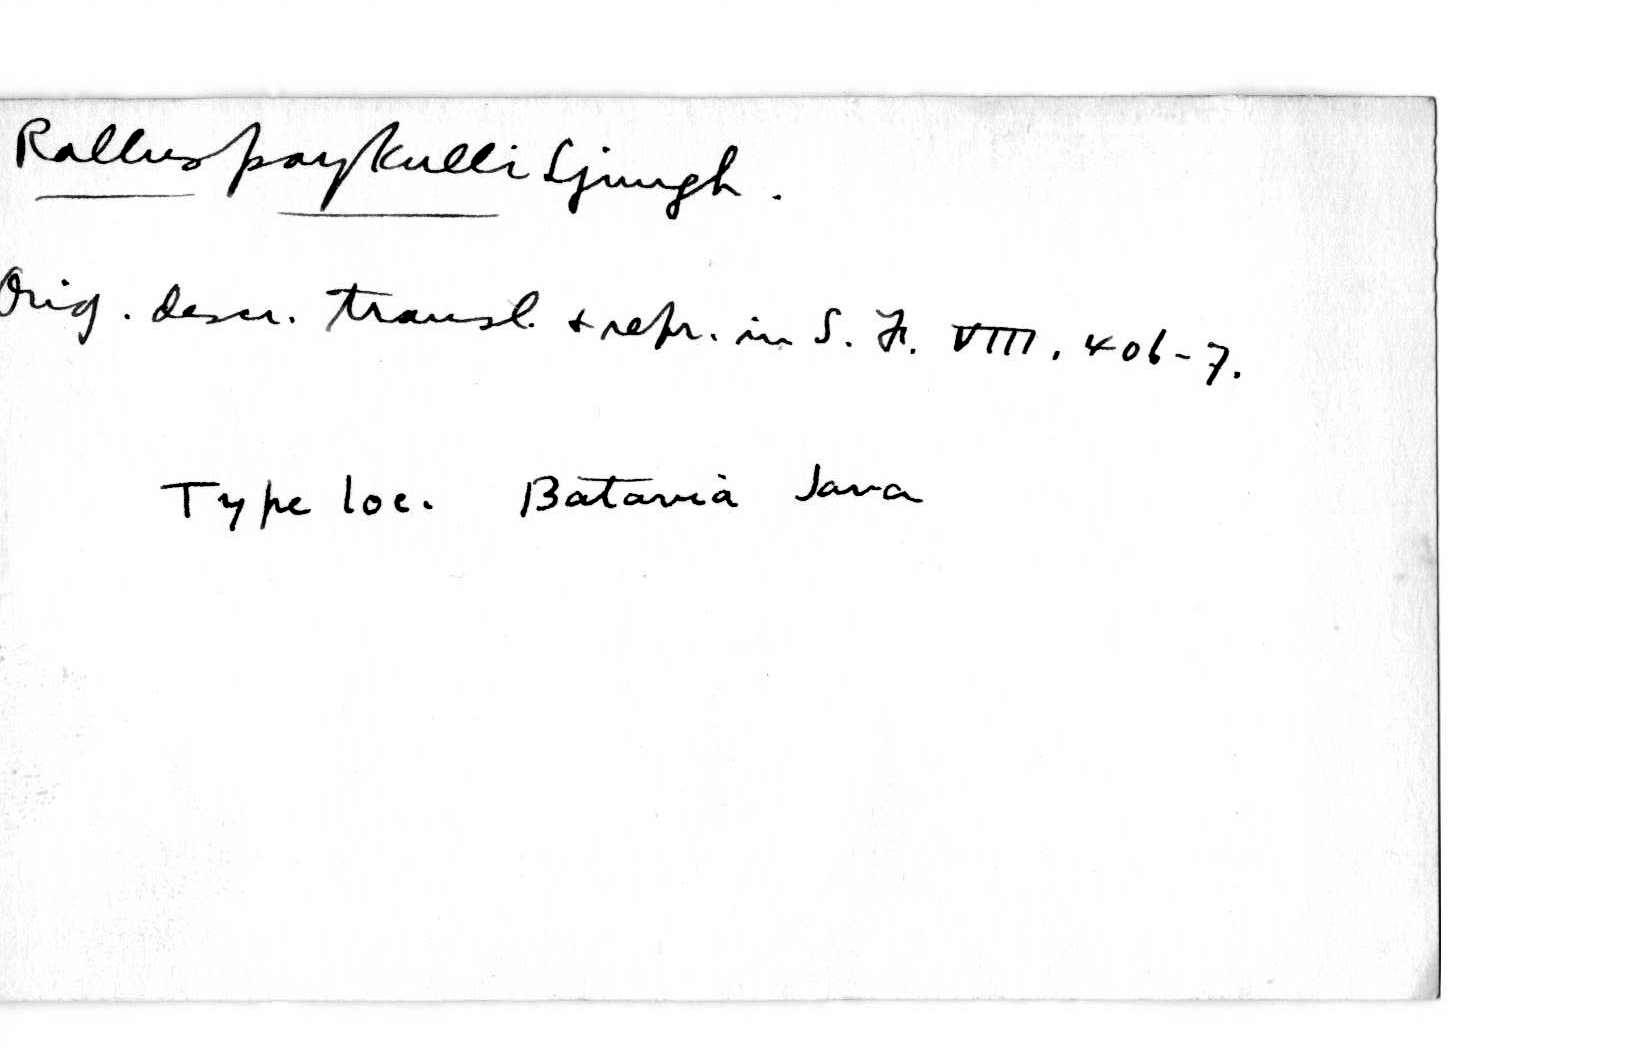 Rallus paykulli Ljungh.
Orig. descr. transl. & repr. in S. F. VIII. 406-7.
Type loc. Batavia Java